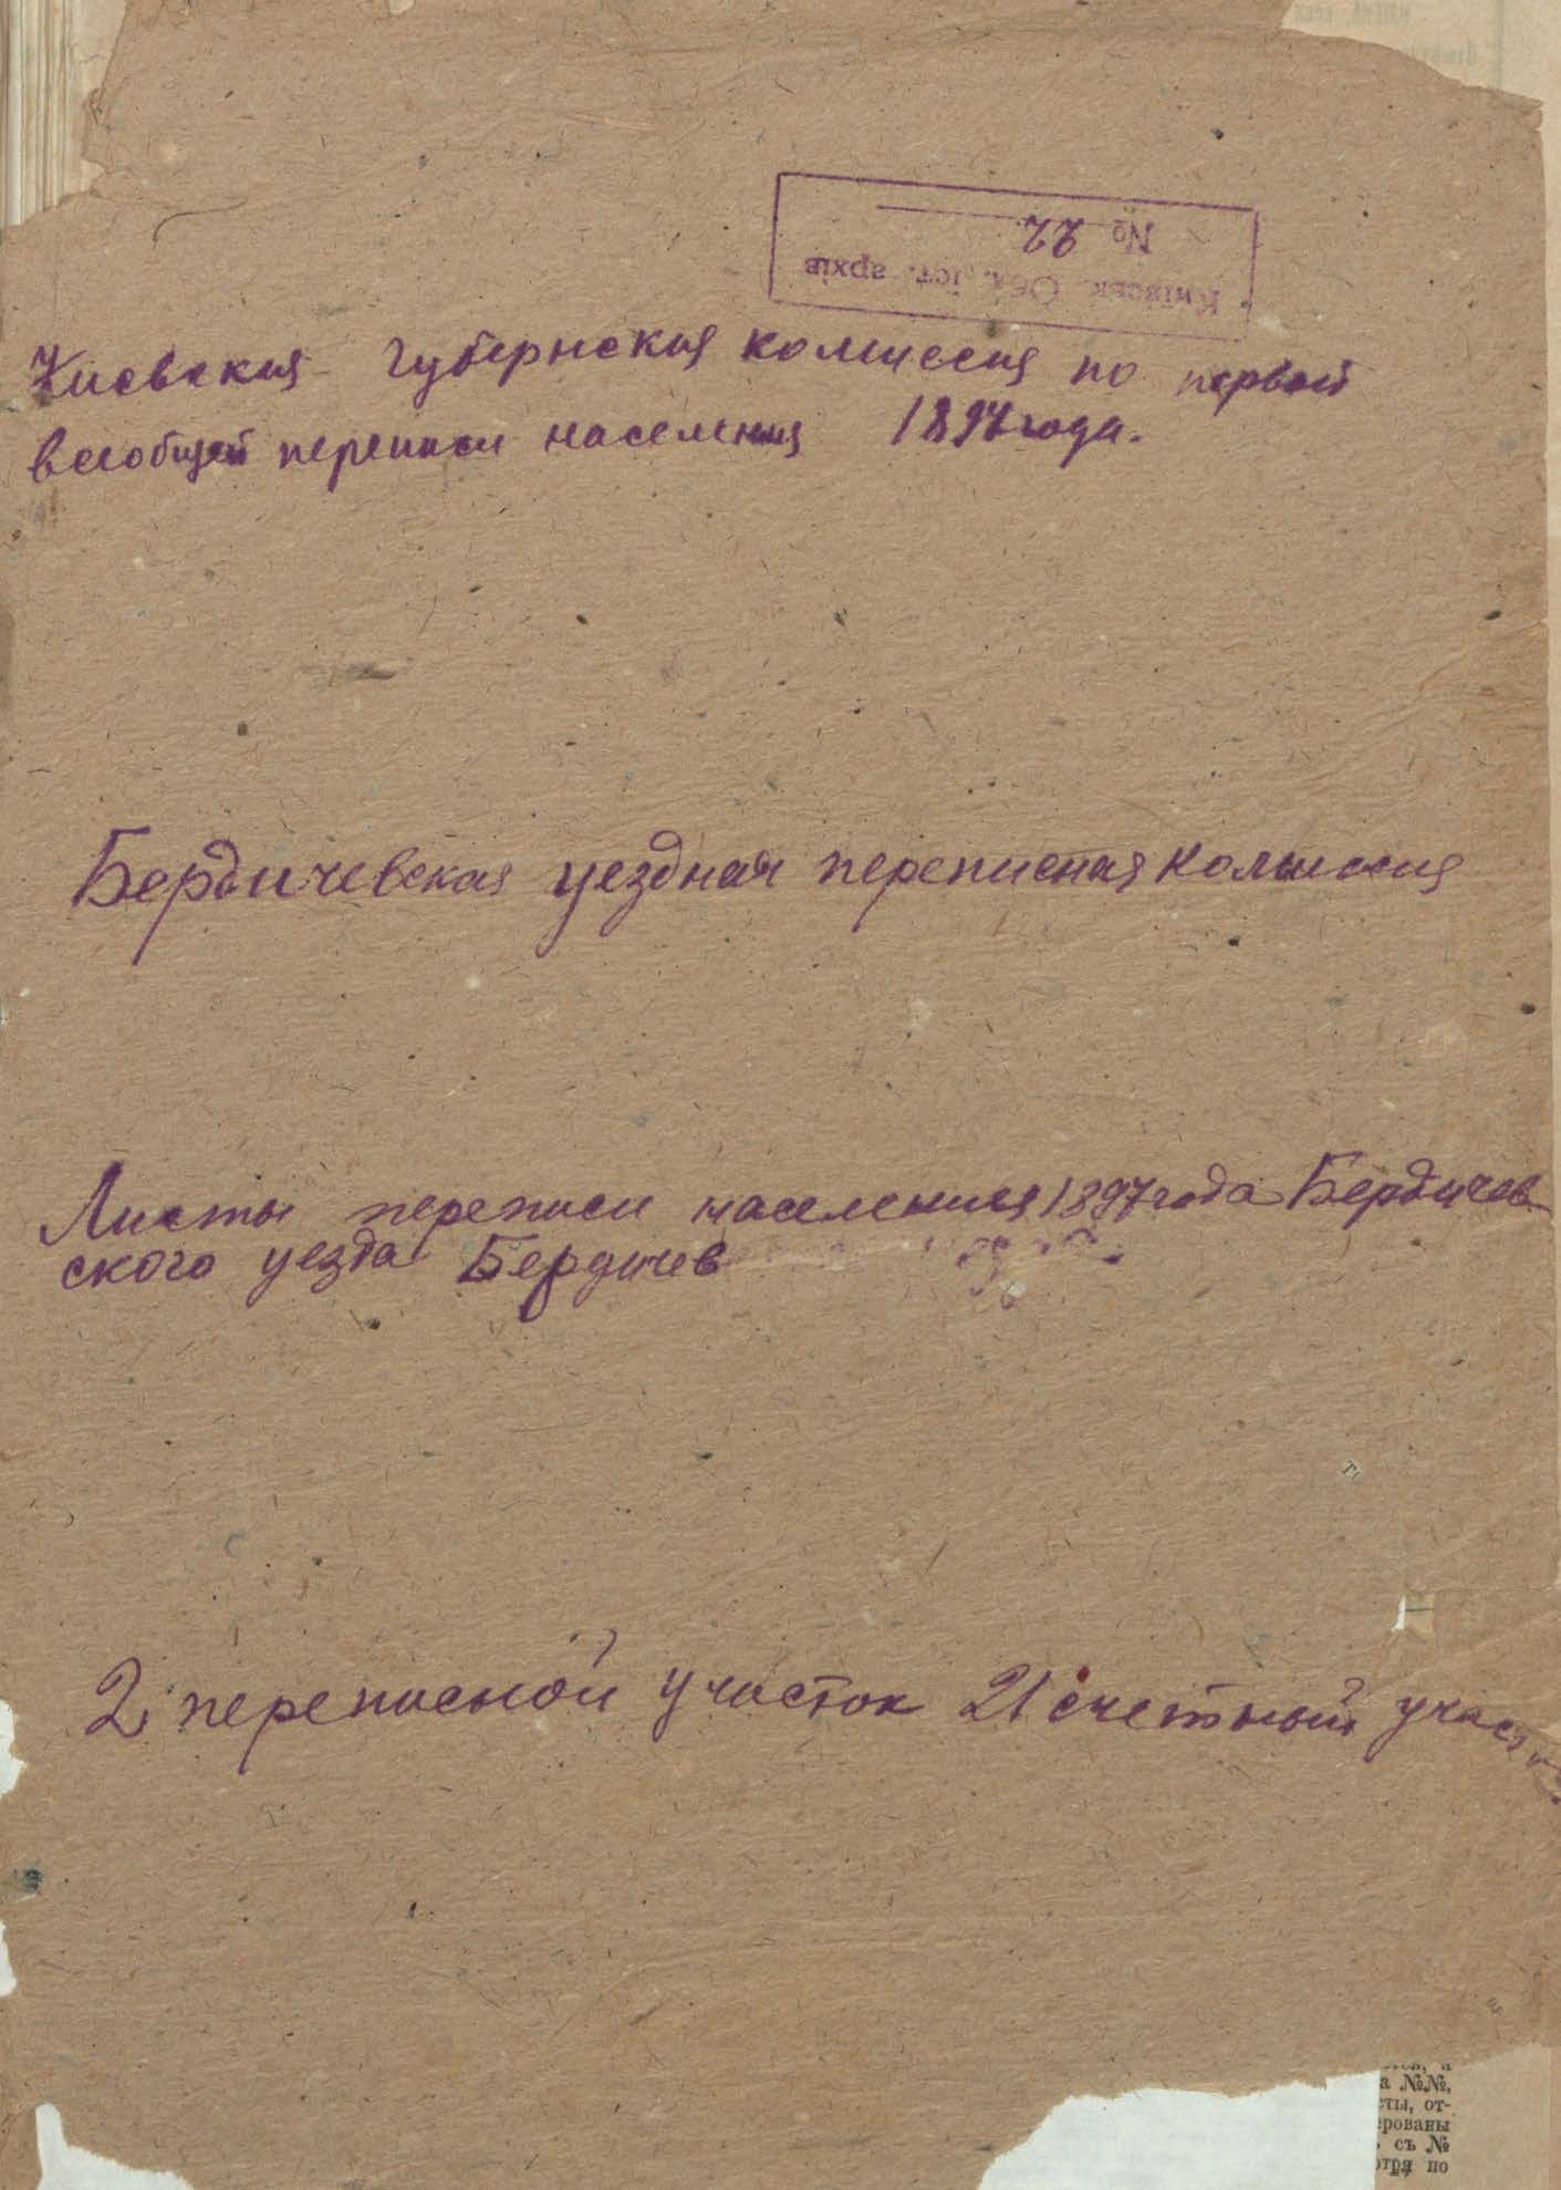 Київськ. Обл. іст. архів
№ 22
Киевская губернская комиссия по первой
всеобщей переписи населения 1897 года.
Бердичевская уездная переписная комиссия
Листы переписи населения 1897 года Бердичев-
ского уезда Бердичев
2 переписной участок 21 счетный участок
а №№,
сты, от-
ерованы
съ №
отря по